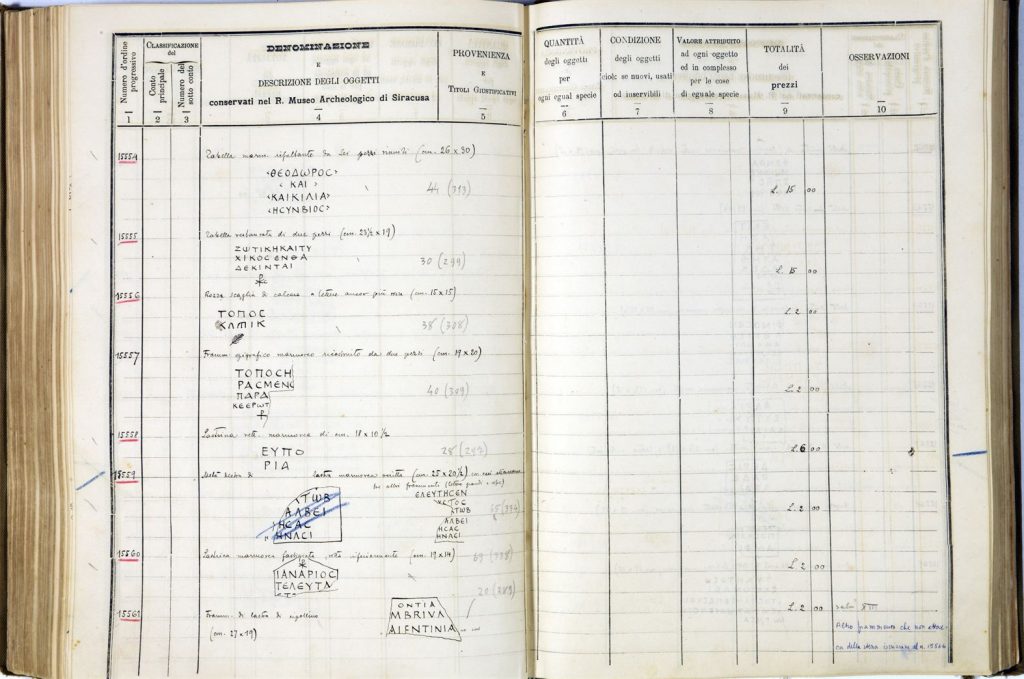 Numero d'ordine progressivo
1
CLASSIFICAZIONE del
Conto principale
2
Numero del sotto conto
3
DENOMINAZIONE
E
DESCRIZIONE DEGLI OGGETTI
conservati nel R. Museo Archeologico di Siracusa
4
PROVENIENZA
E
TITOLI GIUSTIFICATIVI
5
QUANTITÀ
degli oggetti
per
ogni egual specie
6
CONDIZIONE
degli oggetti
cioè: se nuovi, usati
od inservibili
7
VALORE ATTRIBUITO
ad ogni oggetto
ed in complesso
per le cose
di eguale specie
8
TOTALITÀ
dei
prezzi
9
OSSERVAZIONI
10
15554 Tabella marm. risultante da tre pezzi riuniti (cm. 26 x 30)
ΘΕΟΔΩΡΟϹ
ΚΑΙ
ΚΑΙΚΙΛΙΑ
ΗϹΥΝΒΙΟϹ
44 (313)
L. 15 00
15555 Tabella restaurata di due pezzi (cm. 23½ x 19)
ΖΩΤΙΚΗΚΑΙΤΥ
ΧΙΚΟϹΕΝΘΑ
ΔΕΚΙΝΤΑΙ
30 (299)
L. 15 00
15556 Rozza scaglia di calcare a lettere ancor più rozze (cm. 15 x 15)
ΤΟΠΟϹ
ΚΑΜΙΚ
38 (308)
L. 2 00
15557 Framm. epigrafico marmoreo ricostruito da due pezzi (cm. 19 x 20)
ΤΟΠΟϹΗ
ΡΑϹΜΕΝϹ
ΠΑΡΑ
ΚΕΕΡΩΤ
40 (309)
L. 2 00
15558 Lastrina rett. marmorea di cm. 18 x 10 ½
ΕΥΠΟ
ΡΙΑ
28 (297)
L. 6 00
15559 Metà destra di lastra marmorea scritta (cm. 25 x 20½)
altri frammenti
ΤΩΒ
ΑΛΒΕΙ
ΗϹΑϹ
ΗΝΛϹΙ
ΕΛΕΥΤΗϹΕΝ
ΤΟϹ
ΤΩΒ
ΑΛΒΕΙ
ΗϹΑϹ
ΗΝΛϹΙ
65 (334)
L. 2 00
15560 Lastrina marmorea fastigiata, rotta inferiormente (cm. 19 x 14)
ΙΑΝΑΡΙΟϹ
ΤΕΛΕΥΤΑ
69 (338)
L. 2 00
20 (289)
15561 Framm. di lastra di cipollino
(cm. 27 x 19)
ΟΝΤΙΑ
MBRIVA
AIENTINIA
L. 2 00
Altro frammento che non attacca della stessa iscrizione al n. 15564